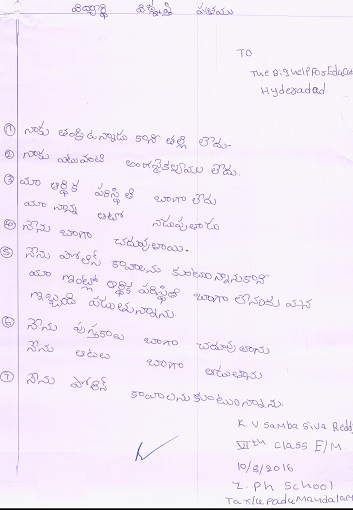 విద్యార్థి విజ్ఞప్తి పత్రము
TO
The Big Help For Educa
Hyderabad
① నాకు తండ్రి ఉన్నాడు కాని తల్లి లేదు.
② నాకు ఎటువంటి అంగవైకల్యము లేదు.
③ మా ఆర్థిక పరిస్థితి బాగా లేదు
మా నాన్న ఆటో నడుపుతాడు
④ నేను బాగా చదువుతాయి.
⑤ నేను పోలీస్ కావాలను కుంటున్నానుకాని
మా ఇంట్లో ఆర్థిక పరిస్థితి బాగా లేనందు వలన
ఇబ్బంది పడుతున్నాను
⑥ నేను పుస్తకాలు బాగా చదువుతాను
నేను ఆటలు బాగా ఆడుతాను
⑦ నేను పోలీస్ కావాలనుకుంటున్నాను.
K. V Samba Siva Reddy
VIIth class E/M
10/8/2016
Z. Ph School
Tarlupadu Mandalam